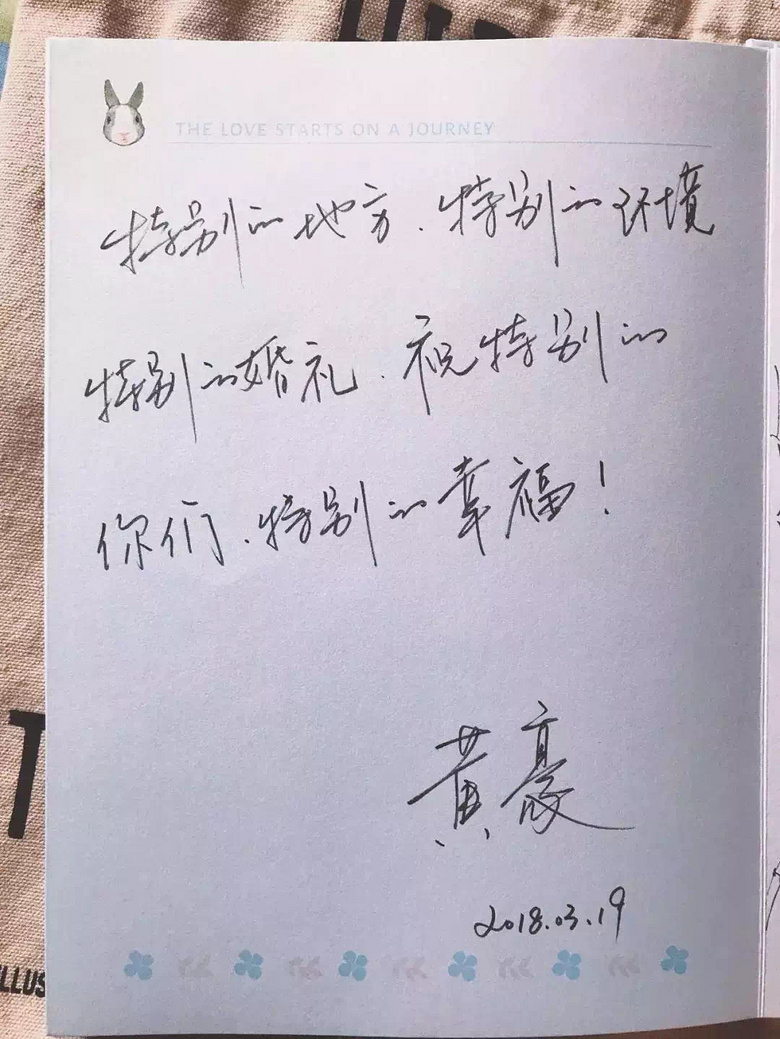 THE LOVE STARTS ON A JOURNEY
特别的地方.特别的环境
特别的婚礼.祝特别的
你们.特别的幸福!
黄豪
2018.03.19
T
LLUS